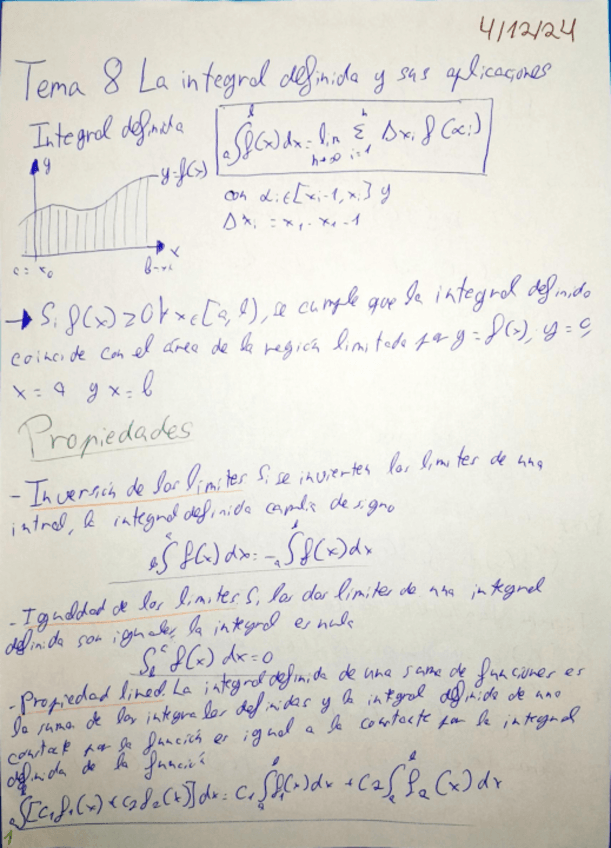 4/12/24
Tema 8 La integral definida y sus aplicaciones
Integral definida
a∫b f(x)dx = lim n→∞ n Σ i=1 Δxi f(αi)
y
y=f(x)
con αi∈[xi-1, xi] y
Δxi = xi - xi-1
x
a = x0
→ Si f(x) ≥ 0 ∀ x∈[a, b], se cumple que la integral definido
coincide con el área de la región limitada por y = f(x), y = 0,
x = a y x = b
Propiedades
- Inversión de los límites Si se invierten los límites de una
intral, la integral definida cambia de signo
b∫a f(x) dx = - a∫b f(x)dx
- Igualdad de los límites. Si los dos límites de una integral
definida son iguales, la integral es nula
f(x) dx = 0
- Propiedad lineal. La integral definida de una suma de funciones es
la suma de las integrales definidas y la integral definida de una
por la función es igual a la por la integral
definida de la función
a∫b[c1f1(x)+c2f2(x)]dx = c1 a∫b f1(x)dx + c2 a∫b f2(x) dx
1